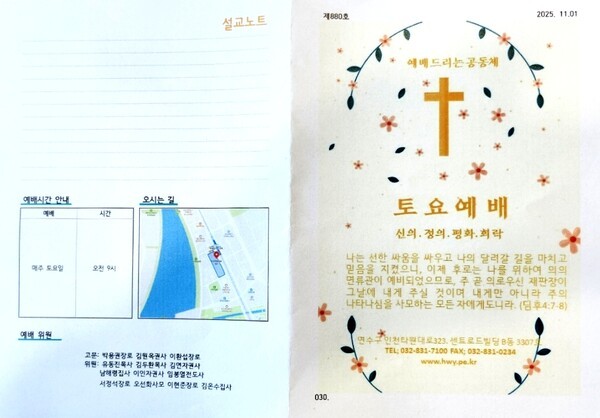 설교노트
예배시간 안내
예배 시간
매주 토요일 오전 9시
오시는 길
예배 위원
고문: 박용권장로 김원옥권사 이환섭장로
위원: 유동진목사 김두환목사 김연자권사
남해령집사 이인자권사 임봉열전도사
서정석장로 오선화사모 이현준장로 김은수집사
제880호 2025. 11.01
예배드리는공동체
토요예배
신의.정의.평화.희락
나는 선한 싸움을 싸우고 나의 달려갈 길을 마치고
믿음을 지켰으니, 이제 후로는 나를 위하여 의의
면류관이 예비되었으므로, 주 곧 의로우신 재판장이
그날에 내게 주실 것이며 내게만 아니라 주의
나타나심을 사모하는 모든 자에게도니라. (딤후4:7-8)
연수구 인천타워대로323. 센트로드빌딩 B동 3307호
TEL; 032-831-7100 FAX; 032-831-0234
www.hwy.pe.kr
030.